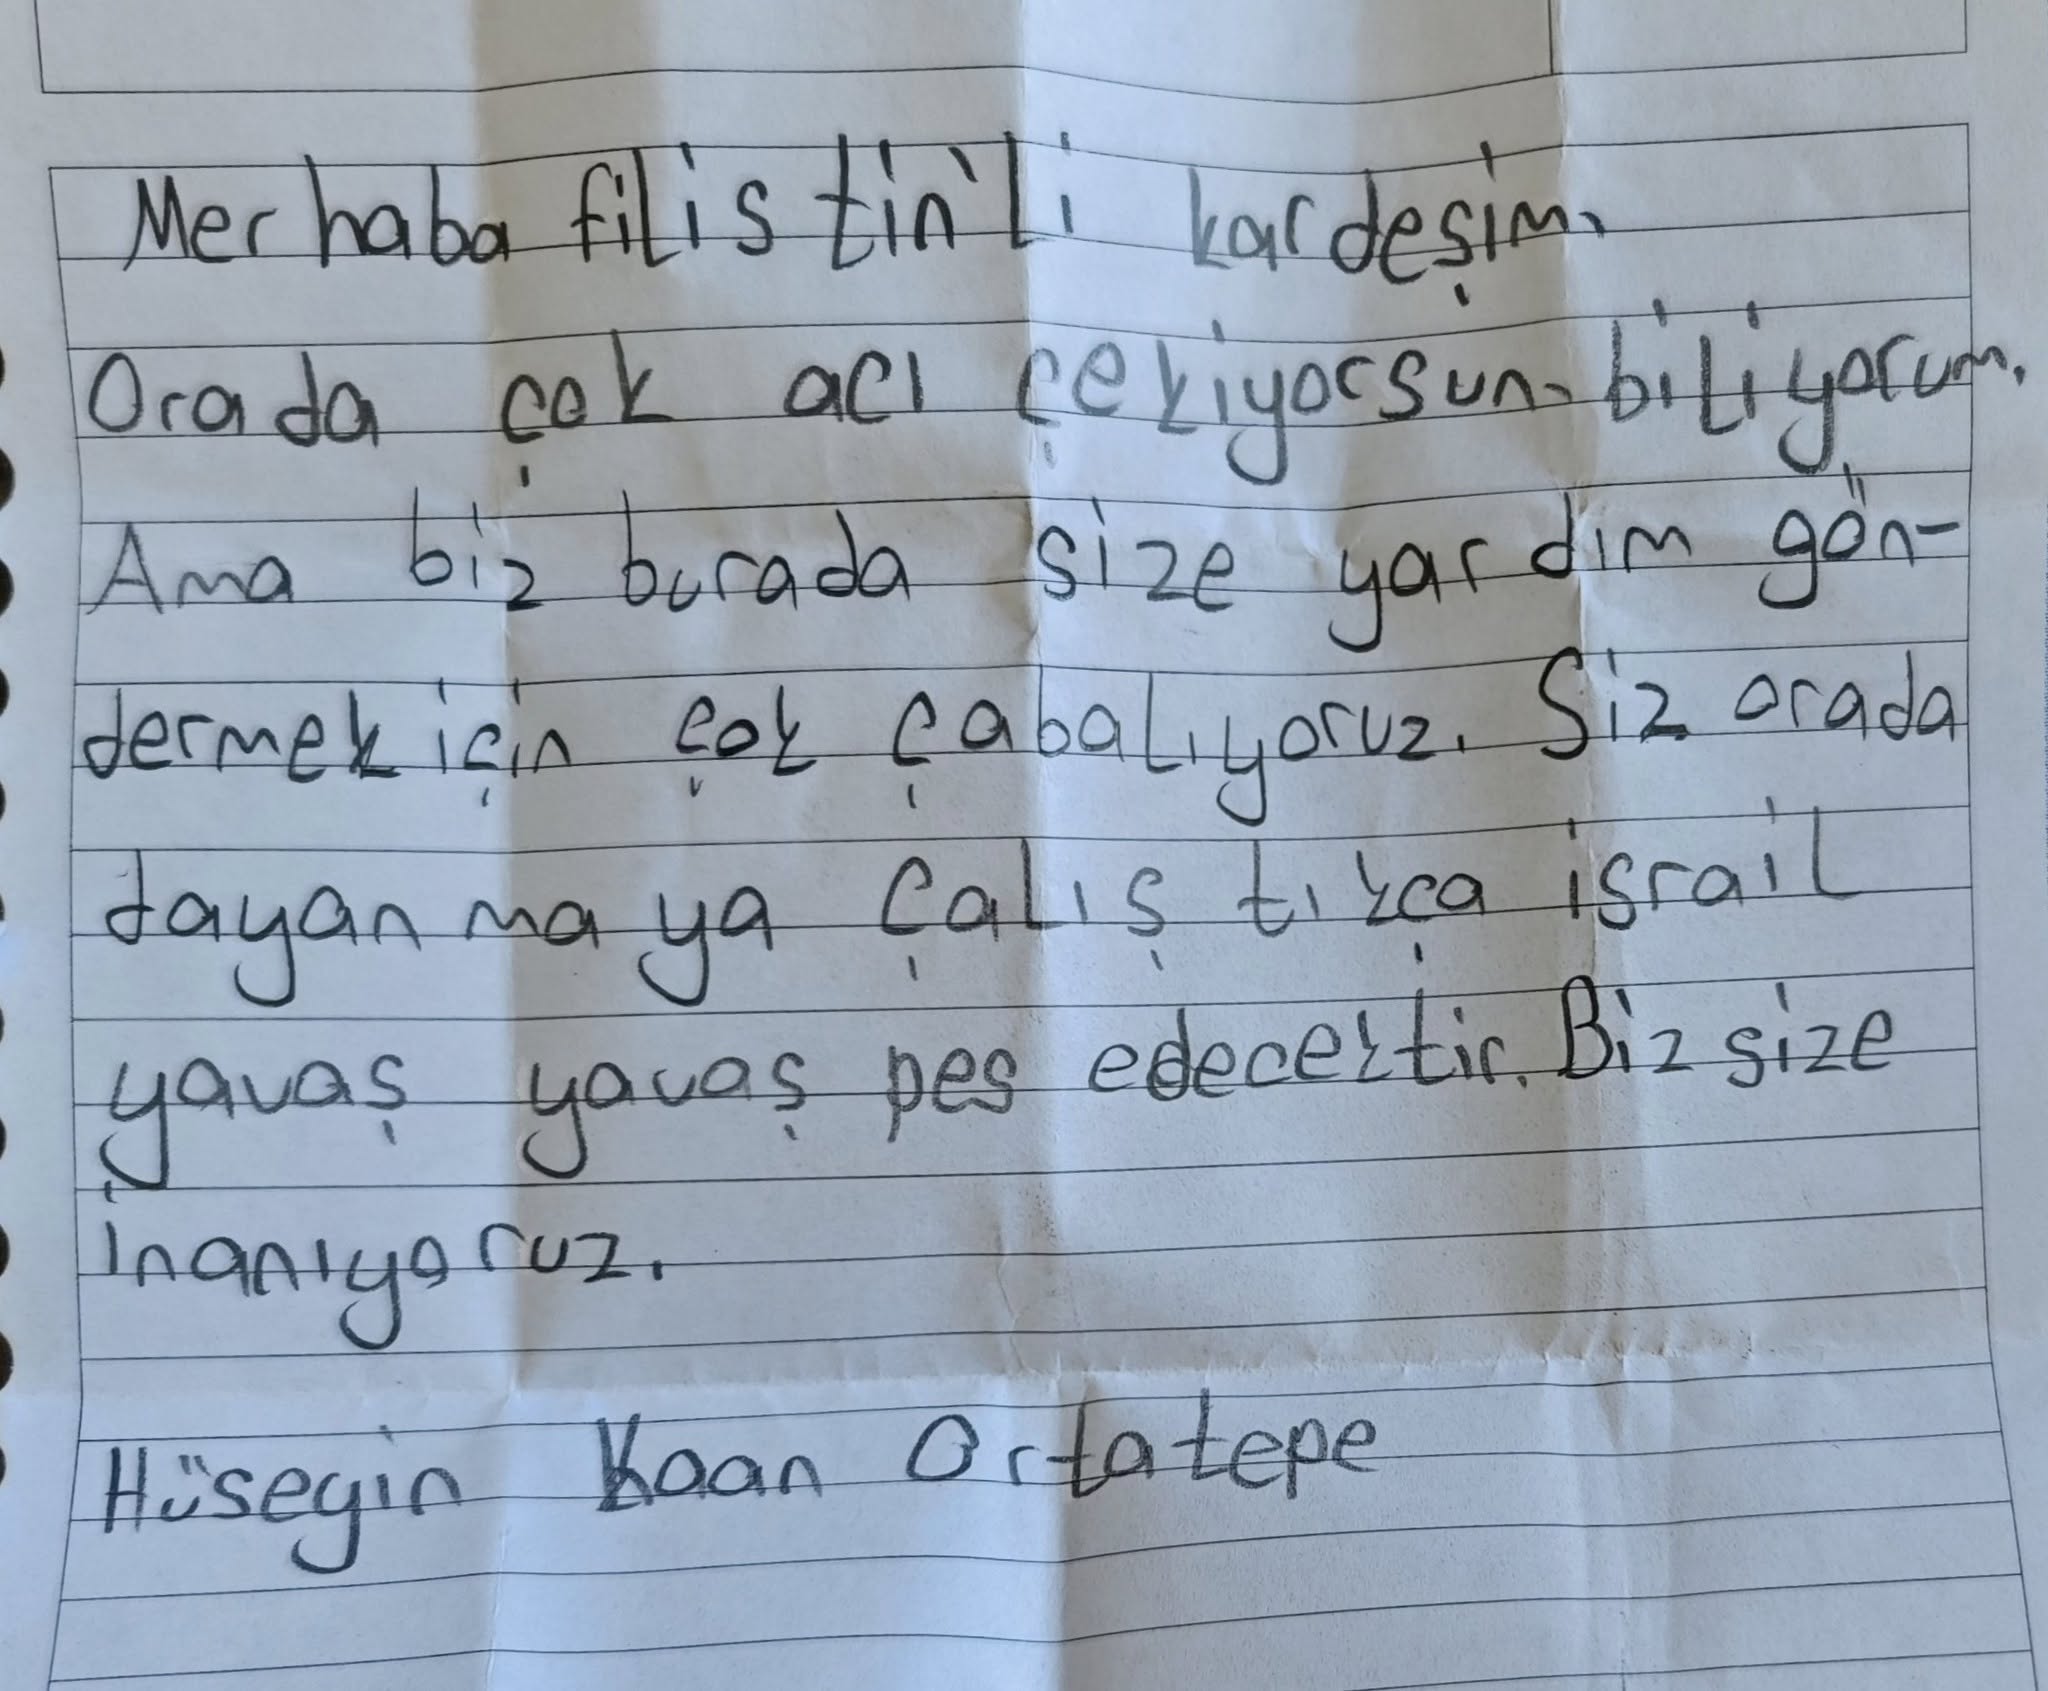 Merhaba filistin'li kardeşim,
Orada çok acı çekiyorsun, biliyorum.
Ama biz burada size yardım gön-
dermek için çok çabalıyoruz. Siz orada
dayanmaya çalıştıkça israil
yavaş yavaş pes edecektir. Biz size
inanıyoruz.
Hüseyin Kaan Ortatepe